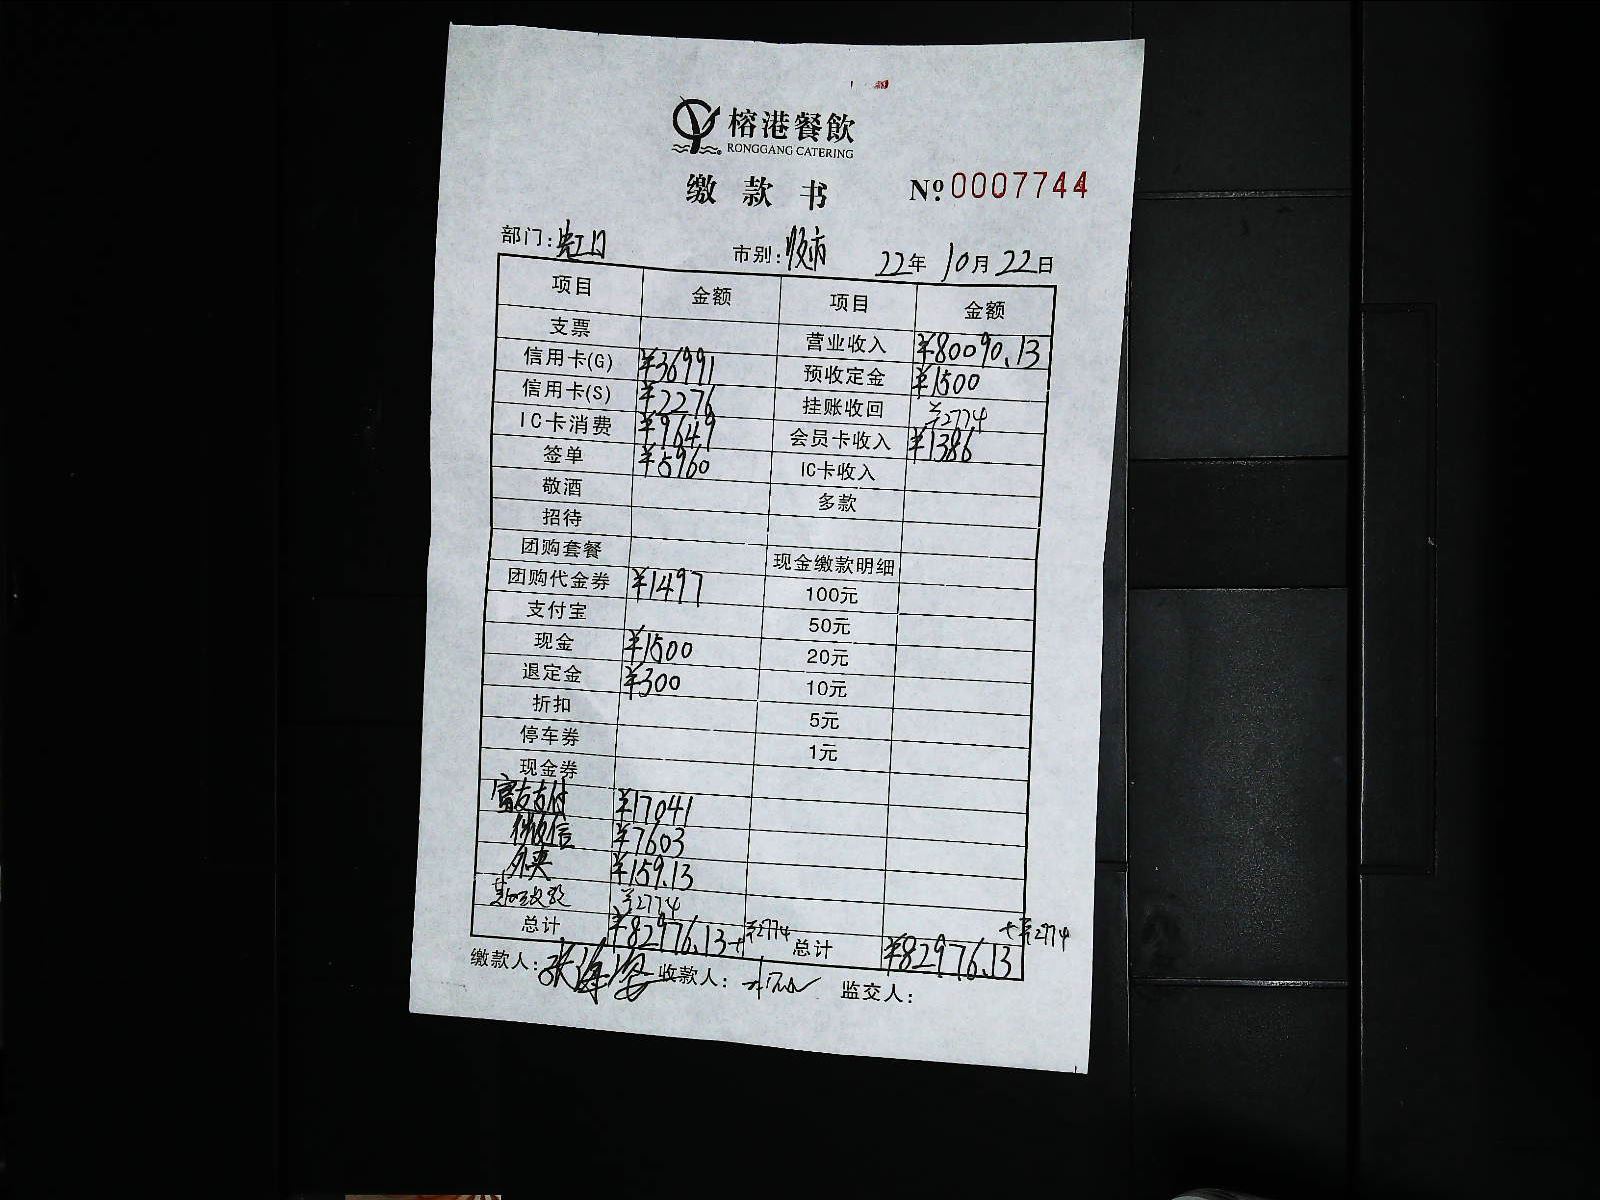 榕港餐飲
RONGGANG CATERING
缴款书 Nº 0007744
部门: 市别: 市 22年10月22日
项目 金额 项目 金额
支票 营业收入 ¥80090.13
信用卡(G) ¥36991 预收定金 ¥1500
信用卡(S) ¥2276 挂账收回 ¥2774
IC卡消费 ¥9649 会员卡收入 ¥1386
签单 ¥5960 IC卡收入
敬酒 多款
招待
团购套餐 现金缴款明细
团购代金券 ¥1497 100元
支付宝 50元
现金 ¥1500 20元
退定金 ¥300 10元
折扣 5元
停车券 1元
现金券
富友支付 ¥17041
微信 ¥7603
外卖 ¥159.13
¥2774
总计 ¥82976.13+¥2774 总计 ¥82976.13+¥2774
缴款人: 收款人: 监交人: